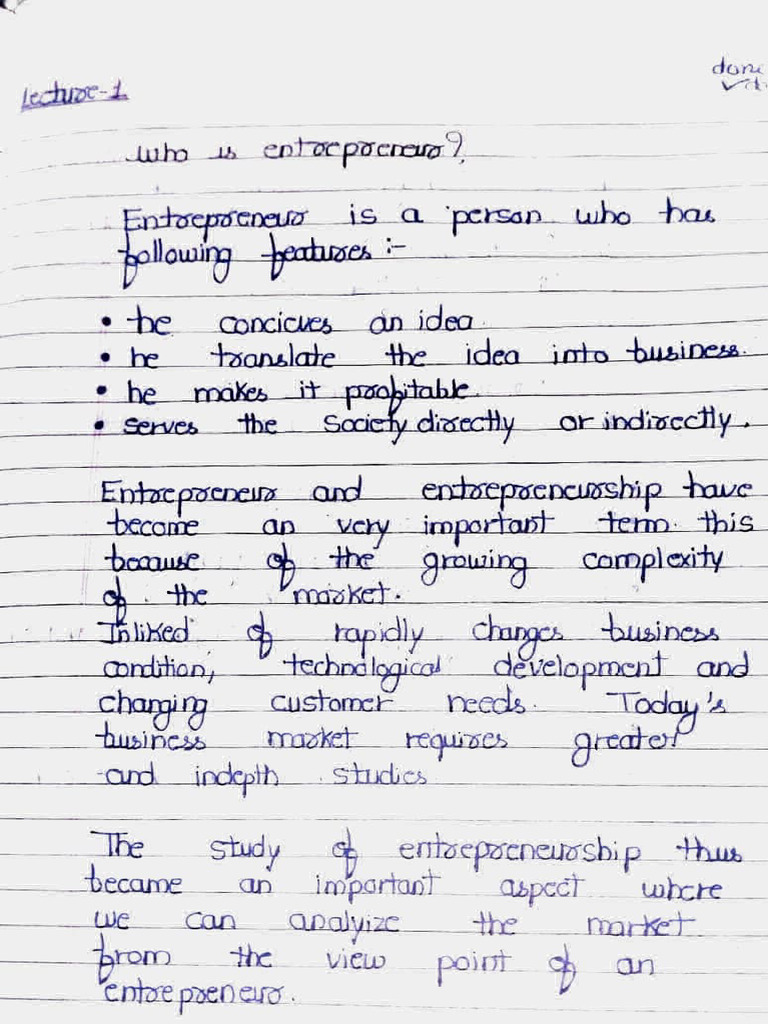 Lecture-1
done
who is entrepreneur?
Entrepreneur is a person who has
following features :-
• he concieves an idea
• he translate the idea into business.
• he makes it profitable.
• serves the society directly or indirectly.
Entrepreneur and entrepreneurship have
become an very important term. this
because of the growing complexity
of the market.
Inliked of rapidly changes business
condition, technological development and
changing customer needs. Today's
business market requires greater
and indepth studies
The study of entrepreneurship thus
became an important aspect where
we can analyize the market
from the view point of an
entrepreneur.